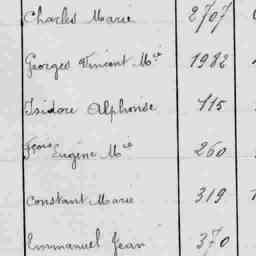 Charles Marie 2707
Georges Vincent Mie 1982
Isidore Alphonse 715
Fçois Eugène Mie 260
Constant Marie 319
Emmanuel Jean 370